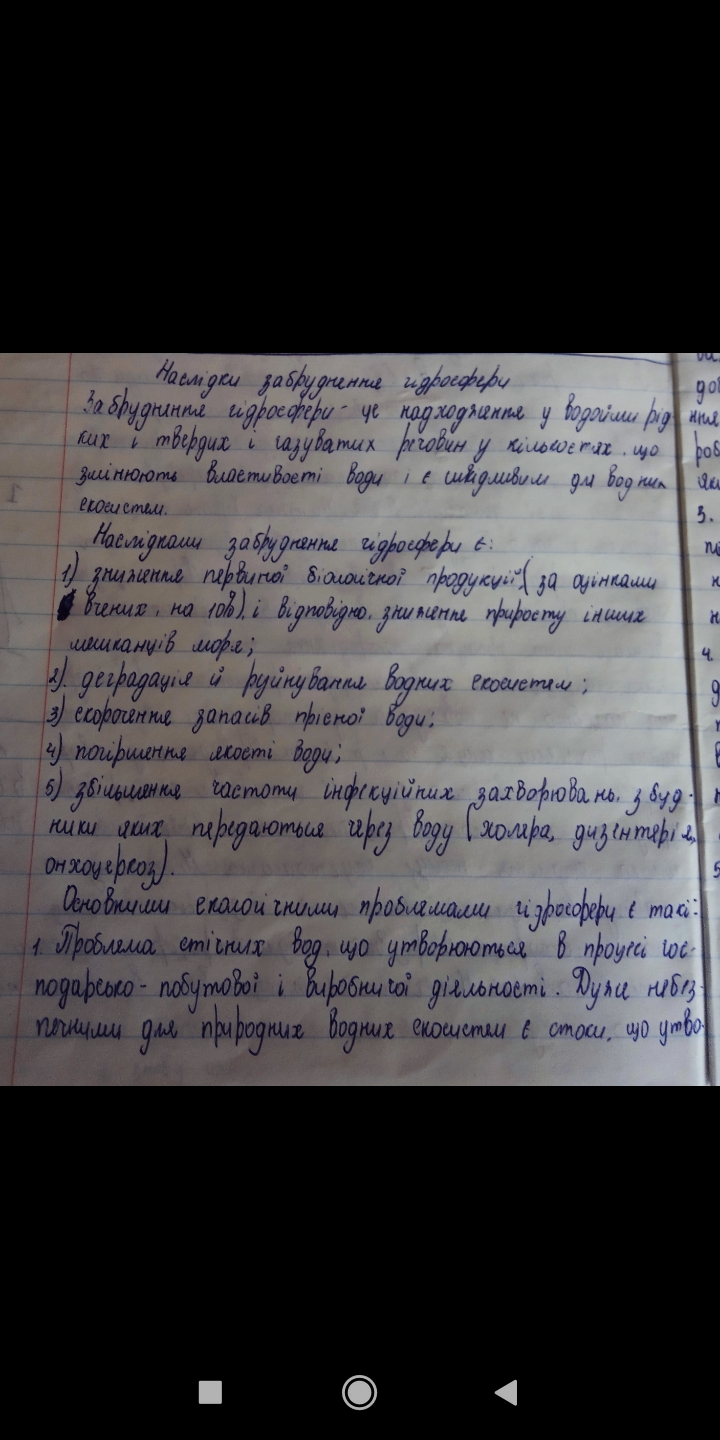 Наслідки забруднення гідросфери
Забруднення гідросфери - це надходження у водойми рід-
ких і твердих і газуватих речовин у кількостях, що
змінюють властивості води і є шкідливим для водних
екосистем.
Наслідками забруднення гідросфери є:
1) зниження первиної біологічної продукції, (за оцінками
вчених, на 10%), і відповідно, зниження приросту інших
мешканців моря;
2). деградація й руйнування водних екосистем;
3) скорочення запасів прісної води;
4) погіршення якості води;
5) збільшення частоти інфекційних захворювань, збуд-
ники яких передаються через воду (холера, дизентерія,
онхоцеркоз).
Основними екологічними проблемами гідросфери є такі:
1. Проблема стічних вод, що утворюються в процесі гос-
подарсько-побутової і виробничої діяльності. Дуже небез-
печними для природних водних екосистем є стоки, що утво-
3.
4.
5